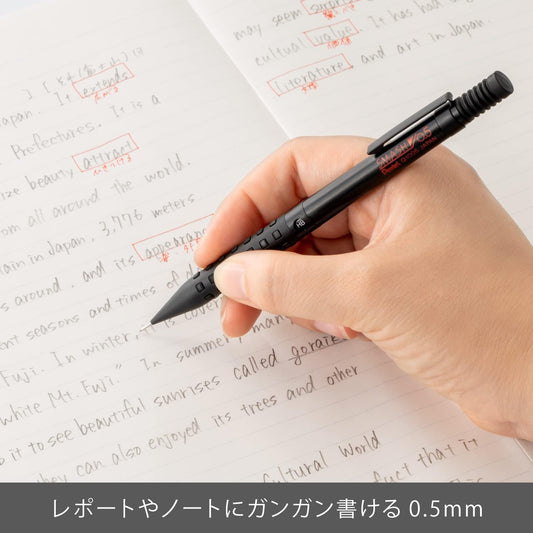 may seem surprising. It has had
cultural value.
literature, and art in Japan.
apan. It extends
Prefectures. It is a
ize beauty attract
om all around the world.
ain in Japan. 3,776 meters
and its appearan
s around. and
ent seasons and times of d
Fuji. In winter, is cover
white Mt. Fuji." In summer, man
s it to see beautiful sunrises called gorai
hey can also enjoyed its trees and other
cultural world
fact that it
SMASH 0.5
Pentel Q1005 JAPAN
HB
レポートやノートにガンガン書ける 0.5mm